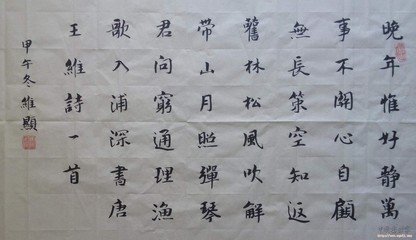 晚年惟好靜萬
事不關心自顧
無長策空知返
舊林松風吹解
帶山月照彈琴
君問窮通理漁
歌入浦深書唐
王維詩一首
甲午冬維顯